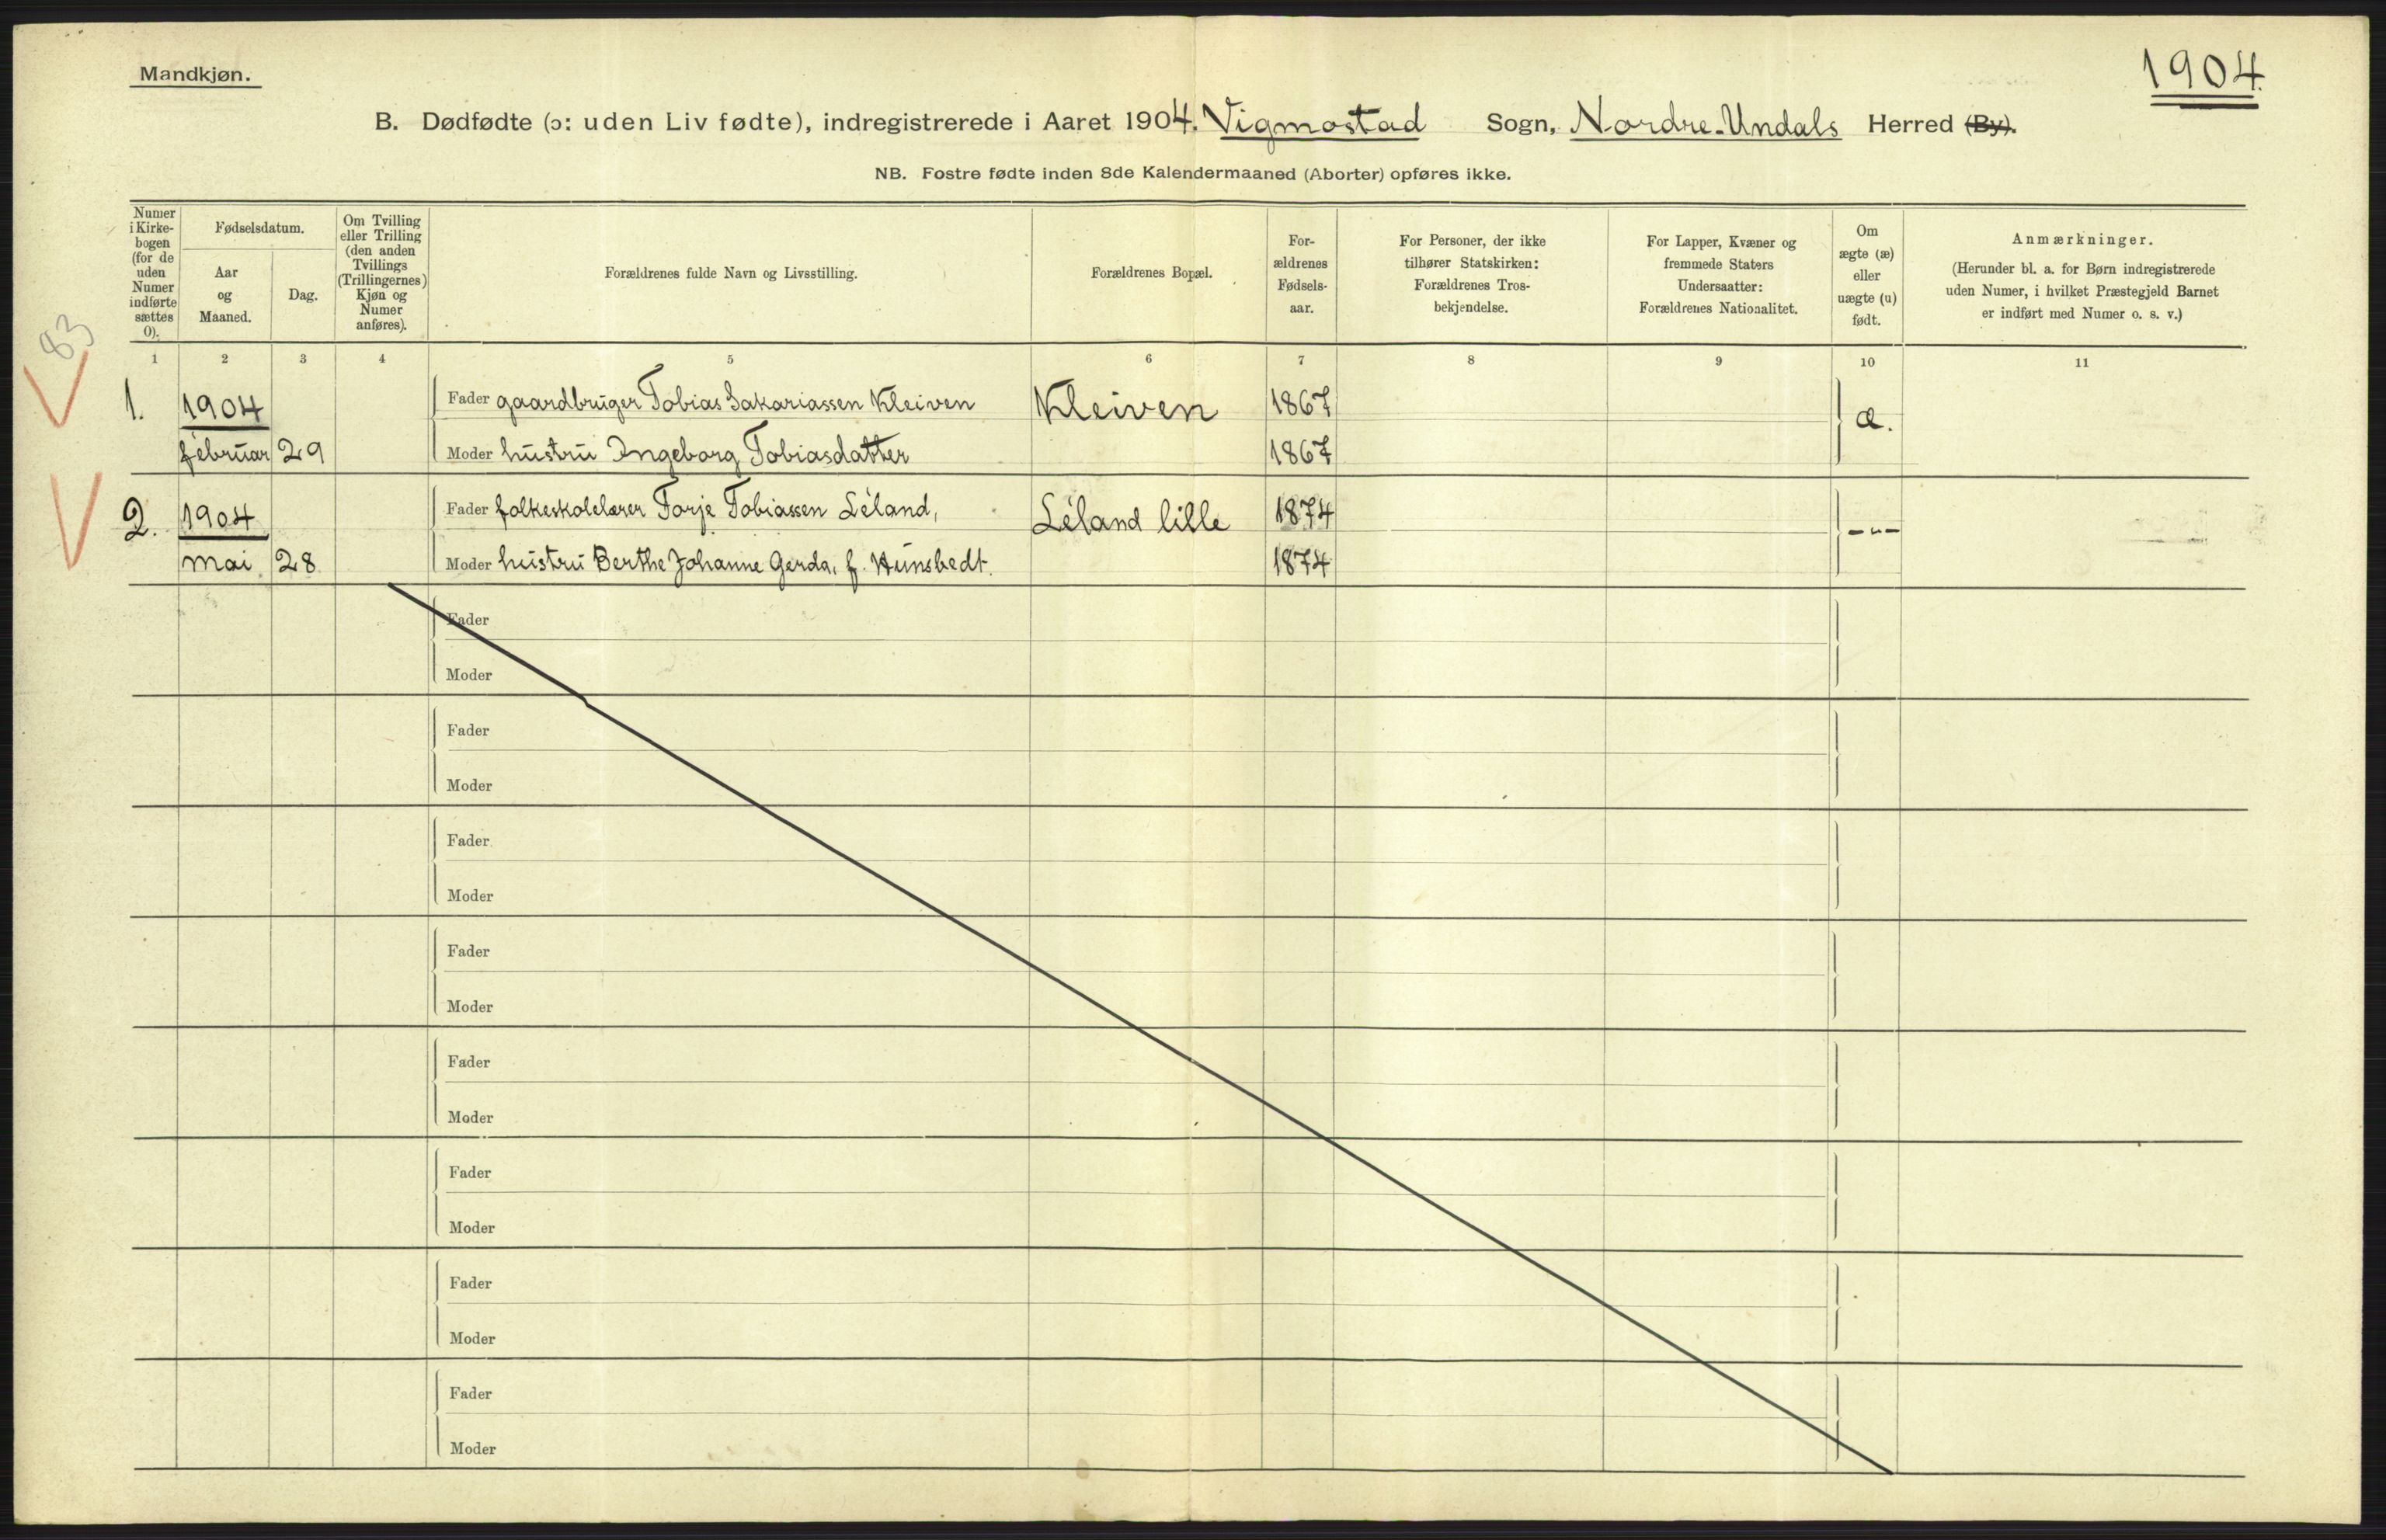 Mandkjøn.
1904.
B. Dødfødte (ɔ: uden Liv fødte), indregistrerede i Aaret 1904. Vigmostad Sogn, Nordre-Undals Herred (By).
NB. Fostre fødte inden 8de Kalendermaaned (Aborter) opføres ikke.
Numer
i Kirke-
bogen
(for de
uden
Numer
indførte
sættes
0).
Fødselsdatum.
Aar
og
Maaned.
Dag.
Om Tvilling
eller Trilling
(den anden
Tvillings
(Trillingernes)
Kjøn og
Numer
anføres).
Forældrenes fulde Navn og Livsstilling.
Forældrenes Bopæl.
For-
ældrenes
Fødsels-
aar.
For Personer, der ikke
tilhører Statskirken:
Forældrenes Tros-
bekjendelse.
For Lapper, Kvæner og
fremmede Staters
Undersaatter:
Forældrenes Nationalitet.
Om
ægte (æ)
eller
uægte (u)
født.
Anmærkninger.
(Herunder bl. a. for Børn indregistrerede
uden Numer, i hvilket Præstegjeld Barnet
er indført med Numer o. s. v.)
83
1 2 3 4 5 6 7 8 9 10 11
1. 1904 Fader gaardbruger Tobias Sakariassen Kleiven Kleiven 1867 æ.
februar 29 Moder hustru Ingeborg Tobiasdatter 1867
2. 1904 Fader folkeskolelærer Torje Tobiassen Léland, Léland lille 1874 -"-
mai 28 Moder hustru Berthe Johanne Gerda, f. Hunsbedt. 1874
Fader
Moder
Fader
Moder
Fader
Moder
Fader
Moder
Fader
Moder
Fader
Moder
Fader
Moder
Fader
Moder